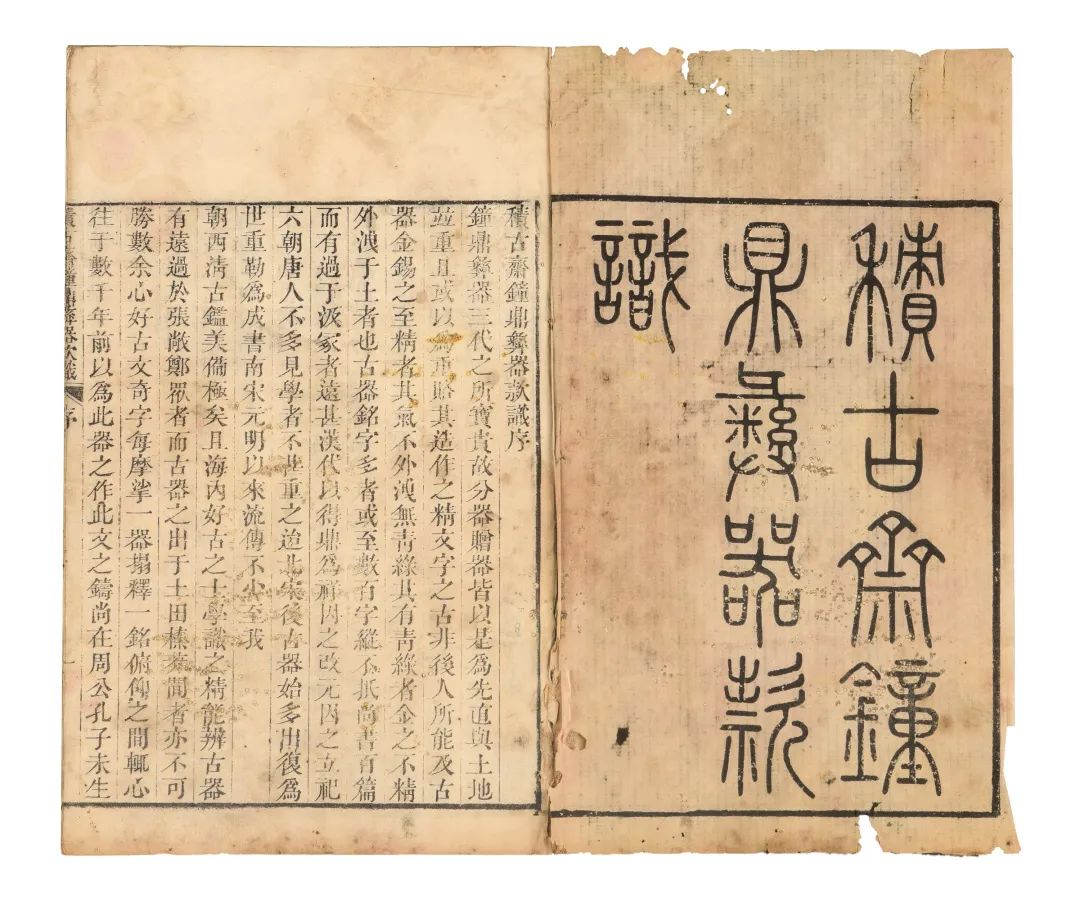 積古齋鐘
鼎彝器款
識
積古齋鐘鼎彝器款識序
鐘鼎彝器三代之所寶貴故分器贈器皆以是爲先直與土地
並重且或以爲重賂其造作之精文字之古非後人所能及古
器金錫之至精者其氣不外洩無青綠其有青綠者金之不精
外洩于土者也古器銘字多者或至數百字縱不抵尚書百篇
而有過于汲冢者遠甚漢代以得鼎爲祥因之改元因之立祀
六朝唐人不多見學者不甚重之迨北宋後古器始多出復爲
世重勒爲成書南宋元明以來流傳不少至我
朝西清古鑑美備極矣且海內好古之士學識之精能辨古器
有遠過於張敞鄭眾者而古器之出于土田榛莽間者亦不可
勝數余心好古文奇字每摩挲一器搨釋一銘俯仰之間輒心
往于數千年前以爲此器之作此文之鑄尚在周公孔子未生
積古齋鐘鼎彝器款識 序 一